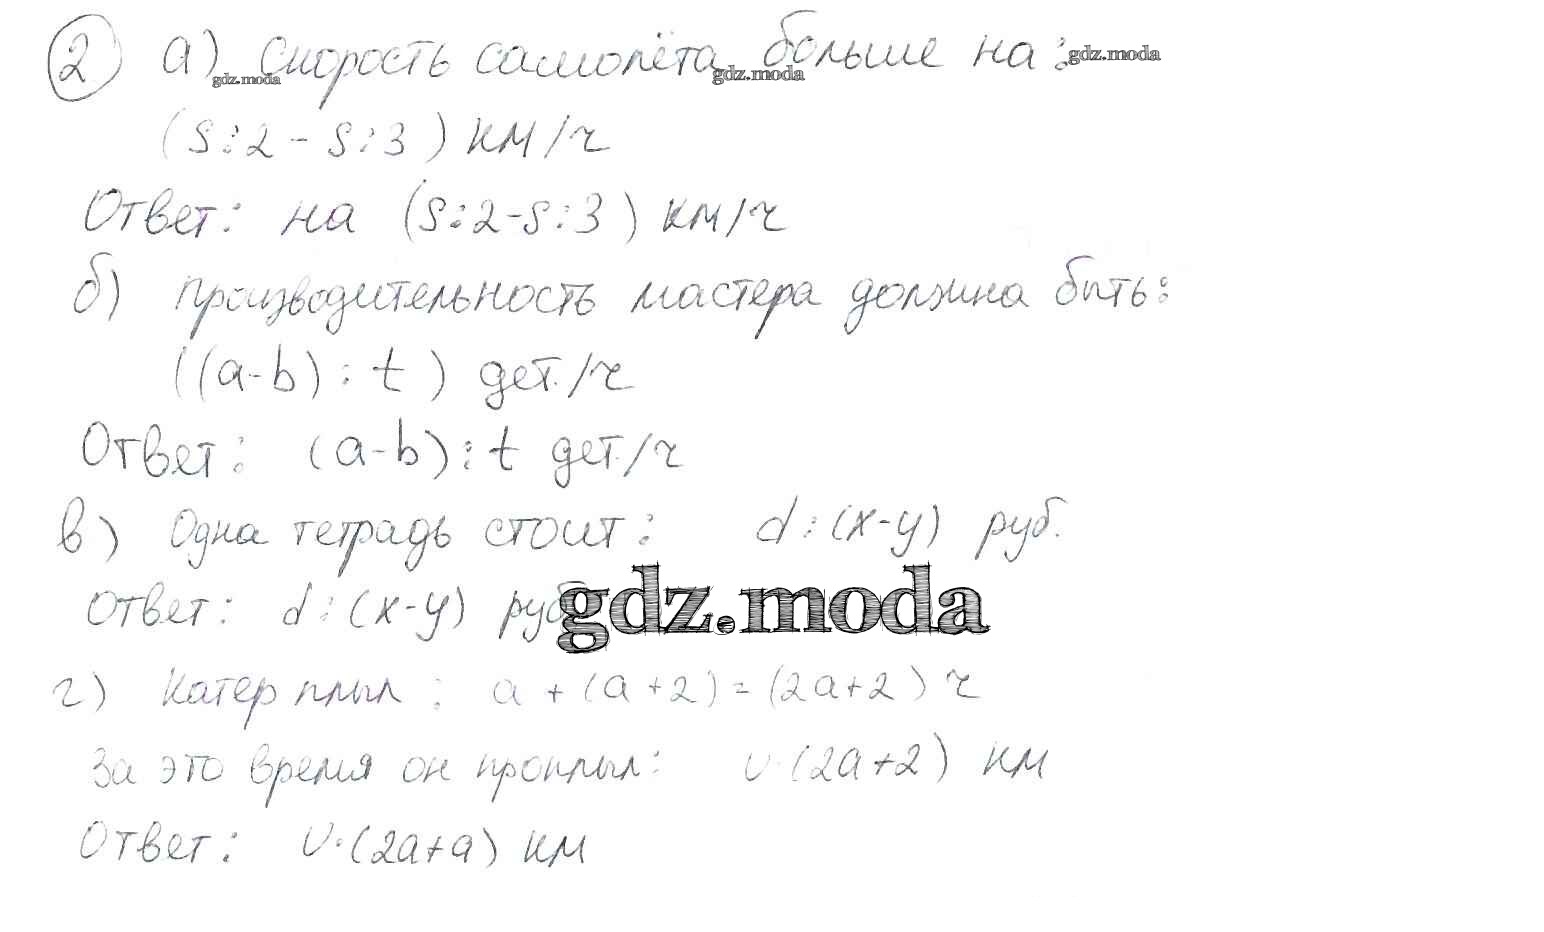 2 а) Скорость самолёта больше на:
(S:2-S:3) км/ч
Ответ: на (S:2-S:3) км/ч
б) производительность мастера должна быть:
((a-b):t) дет./ч
Ответ: (a-b):t дет./ч
в) Одна тетрадь стоит: d:(x-y) руб.
Ответ: d:(x-y) руб
г) Катер плыл: a+(a+2)=(2a+2) ч
За это время он проплыл: v·(2a+2) км
Ответ: v·(2a+a) км
gdz.moda
gdz.moda
gdz.moda
gdz.moda